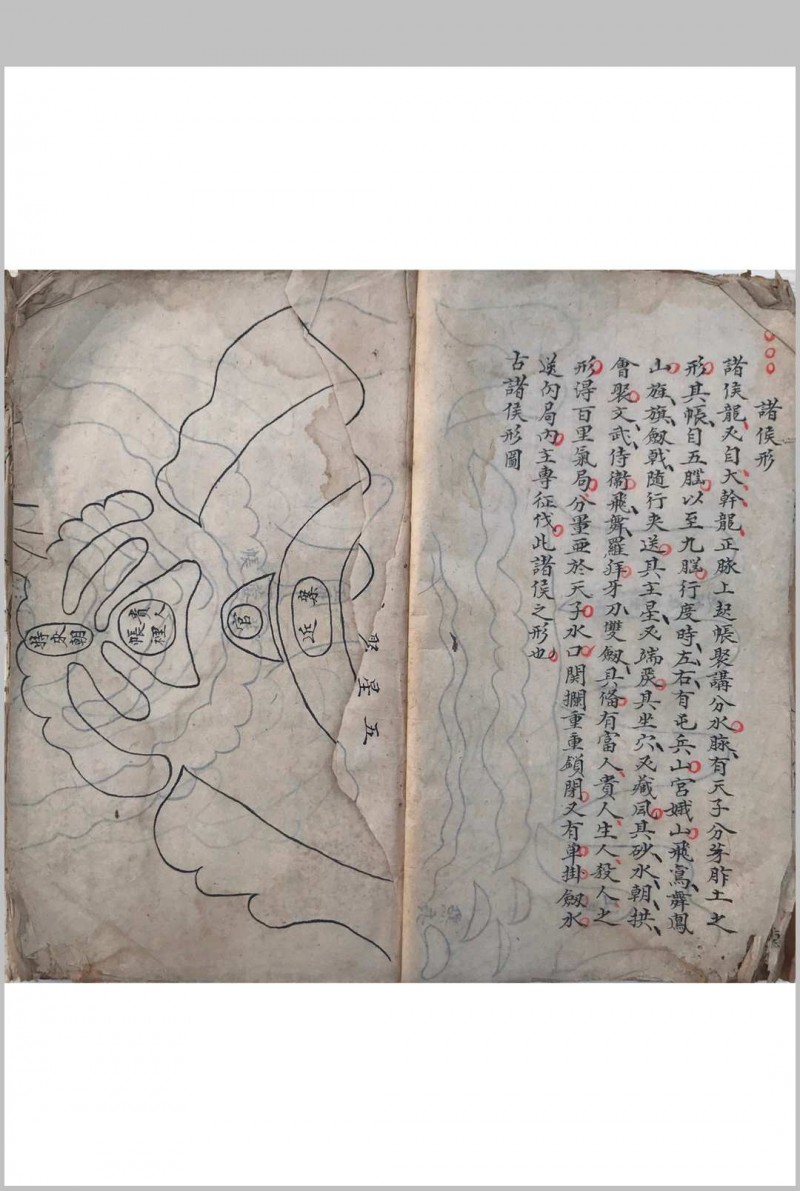 諸侯形
諸侯龍又自大幹龍正脉上起帳聚講分水脉有天子分茅胙土之
形其帳自五腦以至九腦行度時左右有屯兵山宮娥山飛鳶舞鳳
山旌旗劔戟随行夾送其主星又端嚴其坐穴又藏風其砂水朝拱
會聚文武侍衛飛舞羅拜牙刀雙劔具偹有富人貴人生人殺人之
形得百里氣局分量亜於天子水口関攔重重鎖閉又有单掛劔水
送内局内主專征伐此諸侯之形也
古諸侯形圖
五星聚
官
貴人
帳裡
朝來